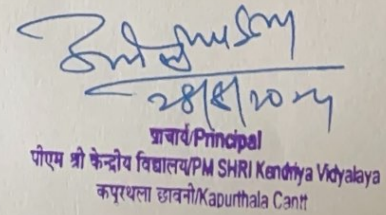 28/8/2024
प्राचार्य/Principal
पीएम श्री केन्द्रीय विद्यालय/PM SHRI Kendriya Vidyalaya
कपूरथला छावनी/Kapurthala Cantt